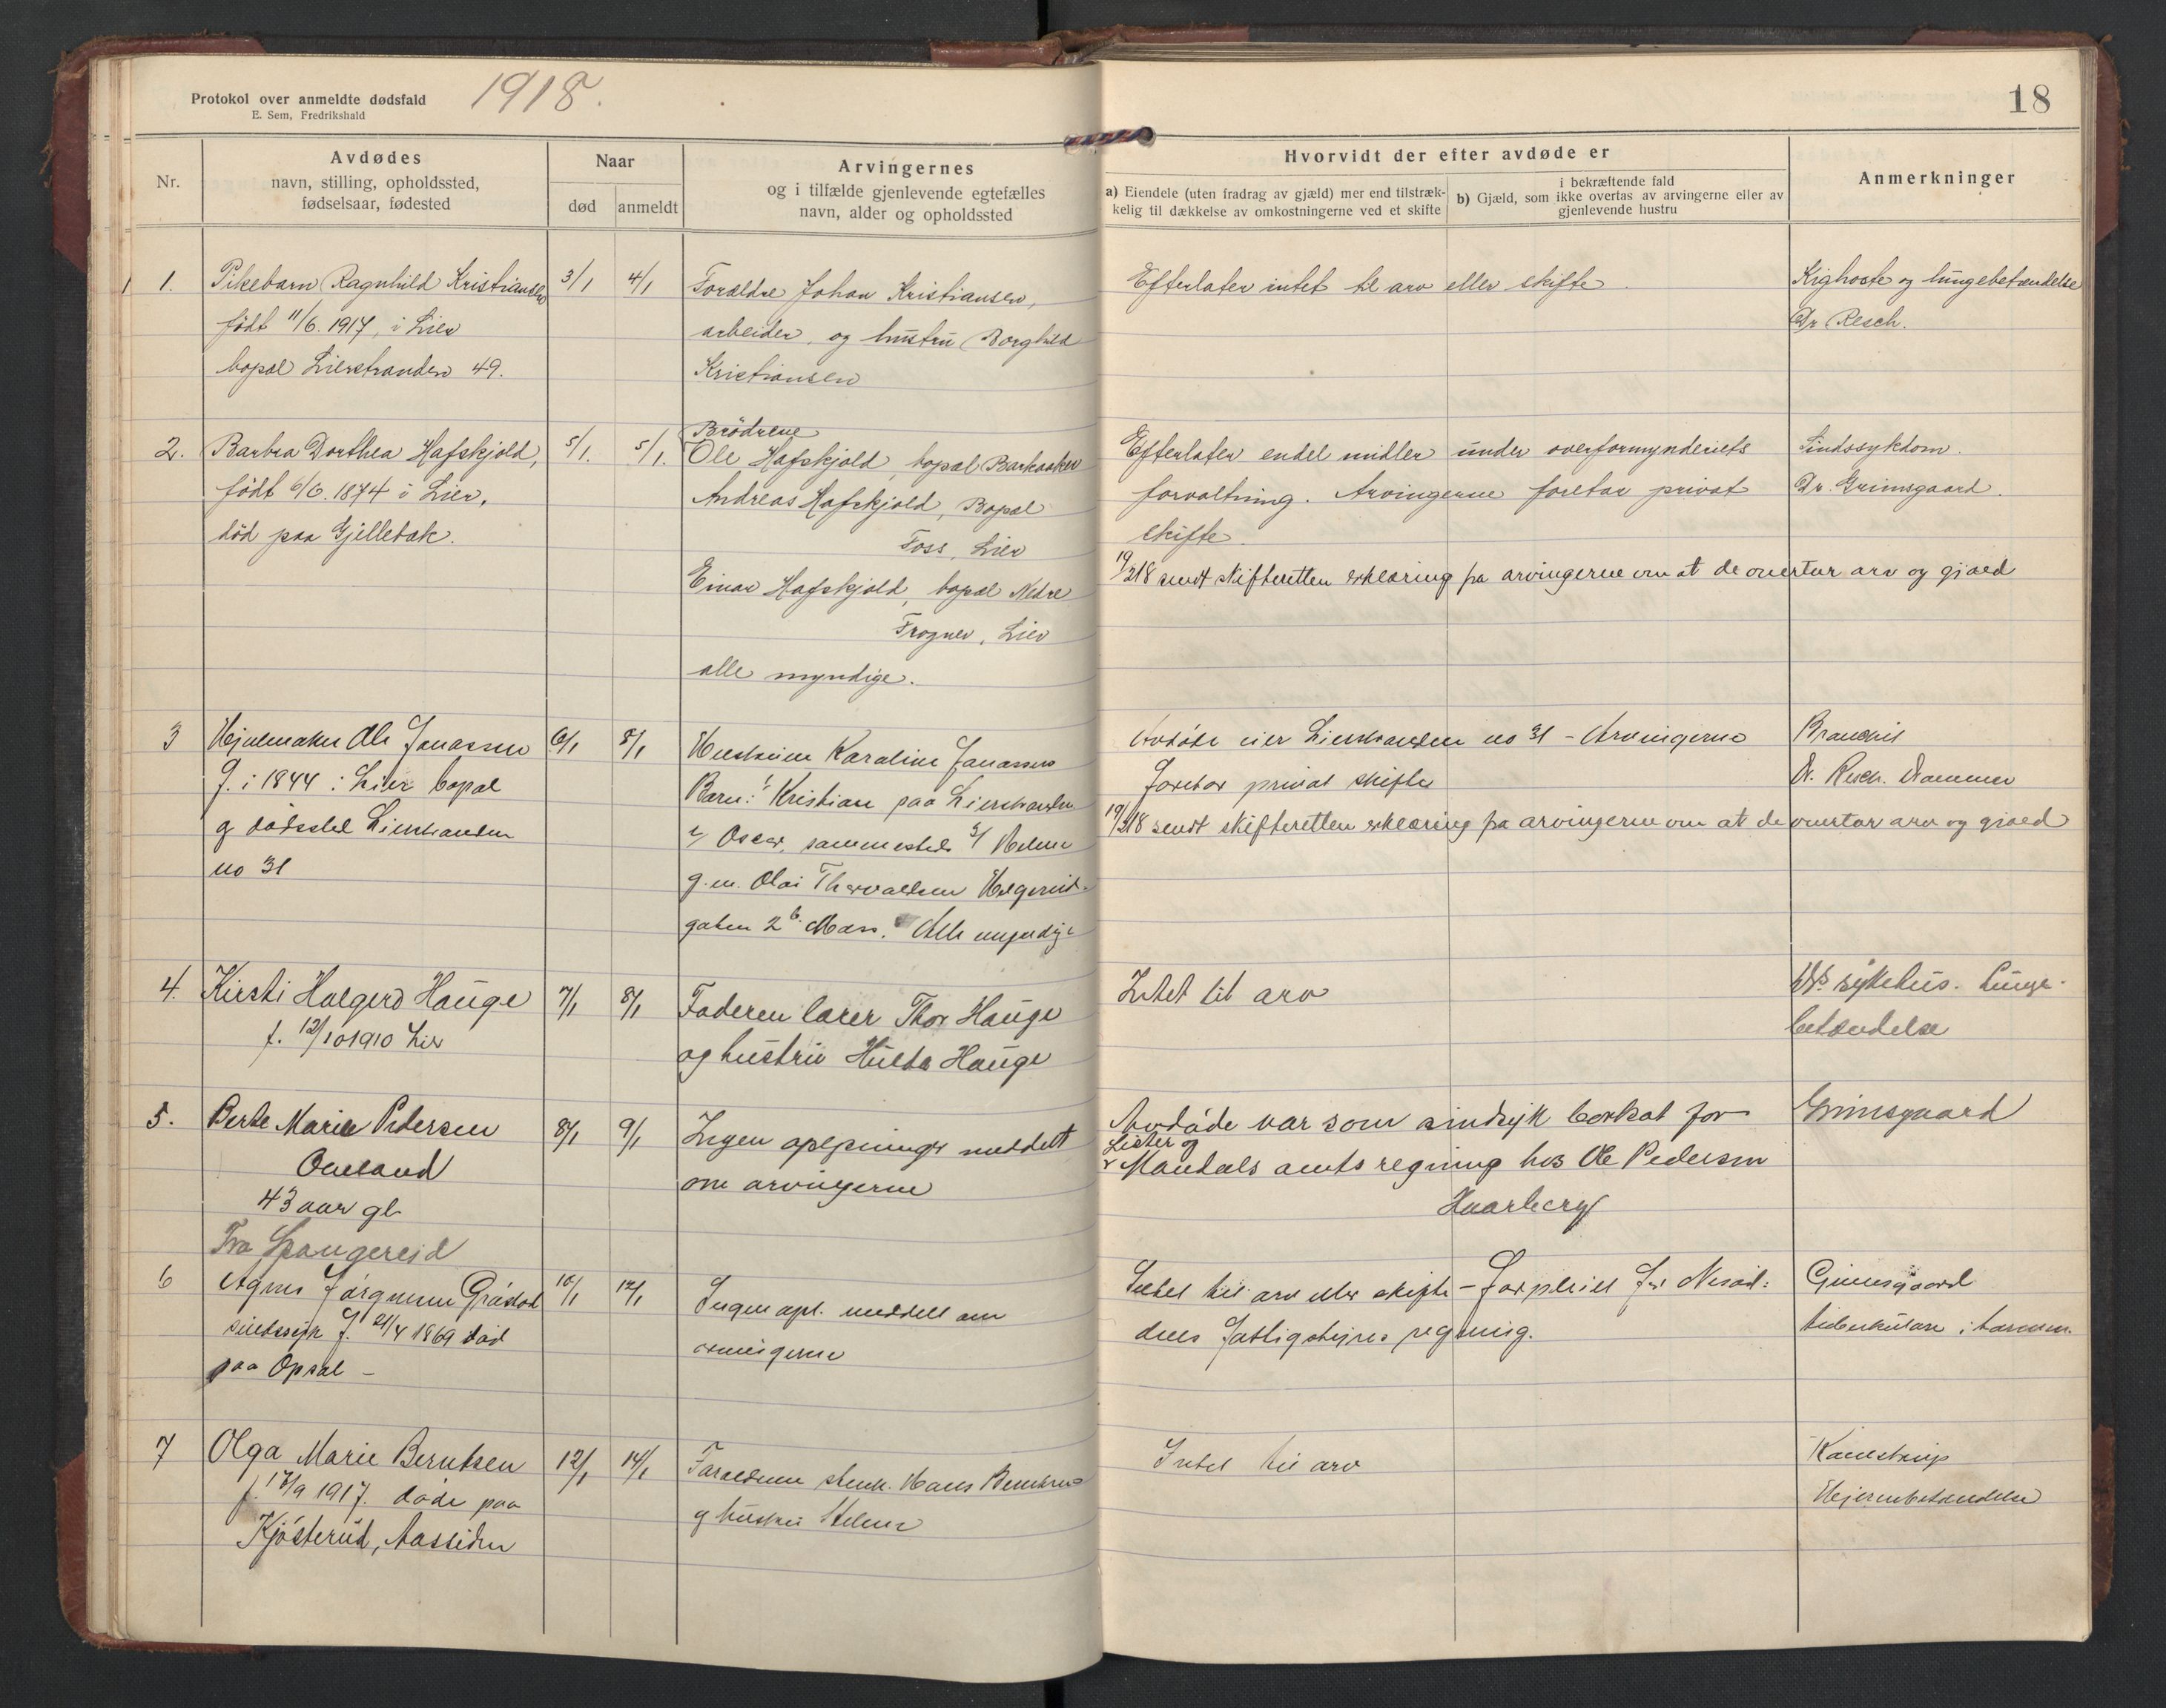 Protokol over anmeldte dødsfald
E. Sem, Fredrikshald
1918.
18
Nr.
Avdødes
navn, stilling, opholdssted,
fødselsaar, fødested
Naar
død
anmeldt
Arvingernes
og i tilfælde gjenlevende egtefælles
navn, alder og opholdssted
Hvorvidt der efter avdøde er
a) Eiendele (uten fradrag av gjæld) mer end tilstræk-
kelig til dækkelse av omkostningerne ved et skifte
i bekræftende fald
b) Gjæld, som ikke overtas av arvingerne eller av
gjenlevende hustru
Anmerkninger
1.
Pikebarn Ragnhild Kristiansen
født 11/6. 1917, i Lier
bopæl Lierstranden 49.
3/1
4/1
Forældre Johan Kristiansen,
arbeider, og hustru Borghild
Kristiansen
Efterlater intet til arv eller skifte.
Kighoste og lungebetændelse
Dr Resch.
2.
Barbra Dorthea Hafskjold,
født 6/6. 1874 i Lier,
død paa Gjellebæk.
5/1.
5/1.
Brødrene
Ole Hafskjold, bopæl Barkaaker
Andreas Hafskjold, Bopæl
Foss, Lier
Einar Hafskjold, bopæl Nedre
Frogner, Lier
alle myndige.
Efterlater endel midler under overformynderiets
forvaltning. Arvingerne foretar privat
skifte.
19/2 18 sendt skifteretten erklæring fra arvingerne om at de overtar arv og gjæld
Sindssykdom.
Dr. Grimsgaard.
3
Hjulmaker Ole Jonassen
f. i 1844 i Lier bopæl
og dødssted Lierstranden
no 31
6/1
8/1
Hustruen Karoline Jonassen
Barn: 1/ Kristian paa Lierstranden
2/ Oscar, sammesteds 3/ Helene
g.m. Olai Thorvaldsen
gaten 2b Alle myndige
Avdøde eier Lierstranden no 31 - Arvingerne
foretar privat skifte
19/2 18 sendt skifteretten erklæring fra arvingerne om at de overtar arv og gjæld
Dr. Resch. Drammen
4.
Kirsti Halgerd Hauge
f. 12/10 1910 Lier
7/1
8/1
Faderen lærer Thor Hauge
og hustru Hulda Hauge
Intet til arv
sykehus. Lunge-
betændelse
5.
Berte Marie Pedersen
43 aar gl.
Fra Spangereid
8/1
9/1
Ingen oplysninger meddelt
om arvingerne
Avdøde var som sindsyk bortsat for
Lister og
Mandals amts regning hos Ole Pedersen
Haarberg
Grimsgaard
6
Agnes Jørgensen
sindssyk f. 21/4 1869 død
paa Opsal -
10/1
12/1
Ingen opl. meddelt om
arvingerne
Intet til arv eller skifte - Forpleiet for Nesod-
dens fattigstyres regning.
Grimsgaard
tuberkulose i tarmen.
7
Olga Marie Berntsen
f. 17/9 1917. døde paa
Kjøsterud, Aassiden
12/1
14/1
Forældrene Hans Berntsen
og hustru Helene
Intet til arv
Hjernebetændelse